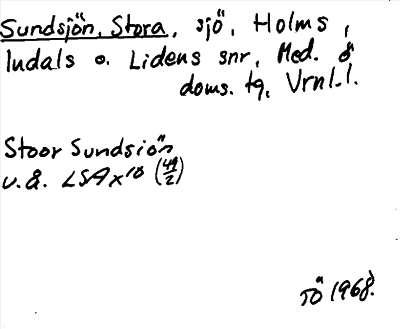 Sundsjön, Stora, sjö, Holms,
Indals o. Lidens snr, Med. å
doms. tg, Vrnl.l.
Stoor Sundsiön
u.å. LSA x 18 (49/2)
TÖ 1968.